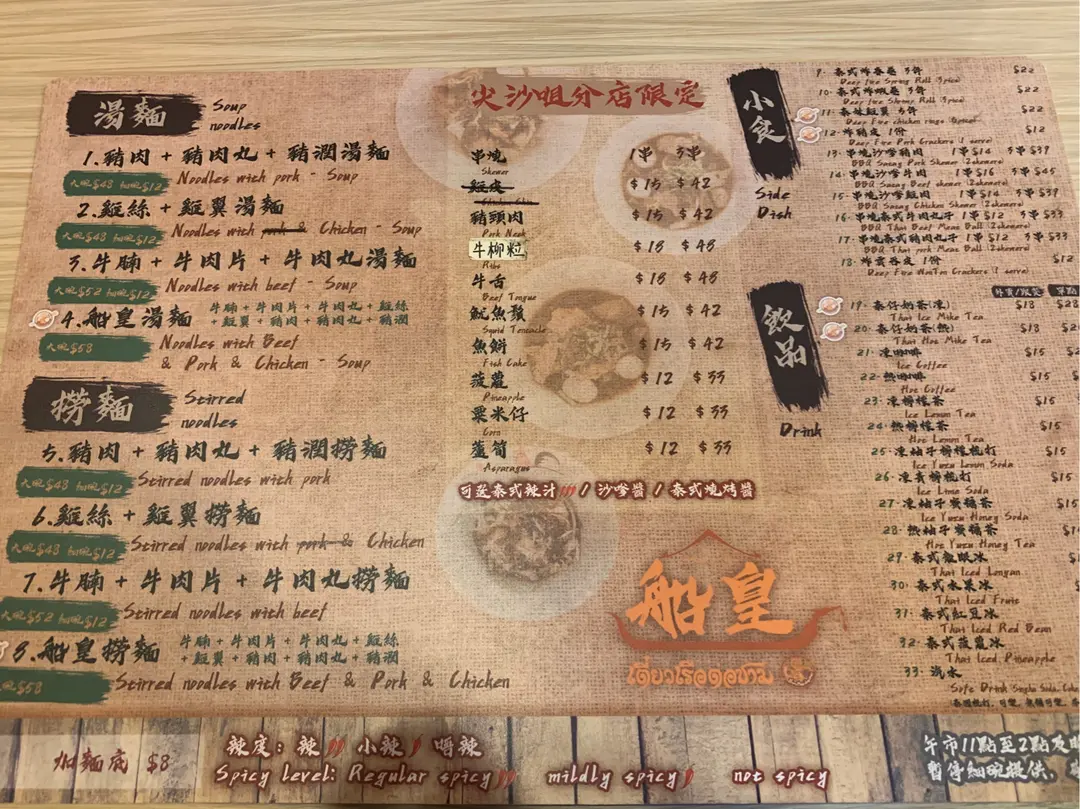 湯麵
Soup
noodles
1.豬肉 + 豬肉丸 + 豬潤湯麵
大碗$48 細碗$12
Noodles with pork - Soup
2.雞絲 + 雞翼湯麵
大碗$48 細碗$12
Noodles with pork & Chicken - Soup
3.牛腩 + 牛肉片 + 牛肉丸湯麵
大碗$52 細碗$12
Noodles with beef - Soup
4.船皇湯麵
牛腩 + 牛肉片 + 牛肉丸 + 雞絲
+ 雞翼 + 豬肉 + 豬肉丸 + 豬潤
大碗$58
Noodles with Beef
& Pork & Chicken - Soup
撈麵
Stirred
noodles
5.豬肉 + 豬肉丸 + 豬潤撈麵
大碗$48 細碗$12
Stirred noodles with pork
6.雞絲 + 雞翼撈麵
大碗$48 細碗$12
Stirred noodles with pork & Chicken
7.牛腩 + 牛肉片 + 牛肉丸撈麵
大碗$52 細碗$12
Stirred noodles with beef
8.船皇撈麵
牛腩 + 牛肉片 + 牛肉丸 + 雞絲
+ 雞翼 + 豬肉 + 豬肉丸 + 豬潤
大碗$58
Stirred noodles with Beef & Pork & Chicken
尖沙咀分店限定
串燒 1串 3串
Skewer
雞皮 $15 $42
豬頸肉 $15 $42
Pork Neck
牛柳粒 $18 $48
Ribs
牛舌 $18 $48
Beef Tongue
魷魚鬚 $15 $42
Squid Tentacle
魚餅 $15 $42
Fish Cake
菠蘿 $12 $33
Pineapple
粟米仔 $12 $33
Corn
蘆筍 $12 $33
Asparagus
可送泰式辣汁 / 沙嗲醬 / 泰式燒烤醬
船皇
小食
Side
Dish
9. 泰式炸春卷 3件 $22
Deep Fire Spring Roll
10. 泰式炸蝦卷 3件 $22
Deep Fire Shrimp Roll
11. 泰妹雞翼 $22
Deep Fire chicken rings
12. 炸豬皮 1份 $12
Deep Fire Pork Crackers
13. 串燒沙嗲豬肉 1串$14 3串$39
BBQ Satay Pork Skewer
14. 串燒沙嗲牛肉 1串$16 3串$45
BBQ Satay Beef skewer
15. 串燒沙嗲雞肉 1串$14 3串$39
BBQ Satay Chicken Skewer
16. 串燒泰式牛肉丸子 1串$12 3串$33
BBQ Thai Beef Meat Ball
17. 串燒泰式豬肉丸子 1串$12 3串$33
BBQ Thai pork Meat Ball
18. 炸雲吞皮 1份 $12
Deep Fire WonTon Crackers
飲品
Drink
19. 泰仔奶茶(凍) $18 $28
Thai Ice Milk Tea
20. 泰仔奶茶(熱) $18
Thai Hot Milk Tea
21. 凍咖啡 $15
Ice Coffee
22. 熱咖啡 $15
Hot Coffee
23. 凍檸檬茶 $15
Ice Lemon Tea
24. 熱檸檬茶 $15
Hot Lemon Tea
25. 凍柚子檸檬梳打 $15
Ice Yuzu Lemon Soda
26. 凍青檸梳打 $15
Ice Lime Soda
27. 凍柚子蜜糖茶 $15
Ice Yuzu Honey Soda
28. 熱柚子蜜糖茶 $15
Hot Yuzu Honey Tea
29. 泰式龍眼冰
Thai Iced Longan
30. 泰式水果冰
Thai Iced Fruits
31. 泰式紅豆冰
Thai Iced Red Bean
32. 泰式菠蘿冰
Thai Iced Pineapple
33. 汽水
Soft Drink
加麵底 $8
辣度: 辣 小辣 唔辣
Spicy Level: Regular spicy mildly spicy not spicy
午市11點至2點及
暫停細碗提供,